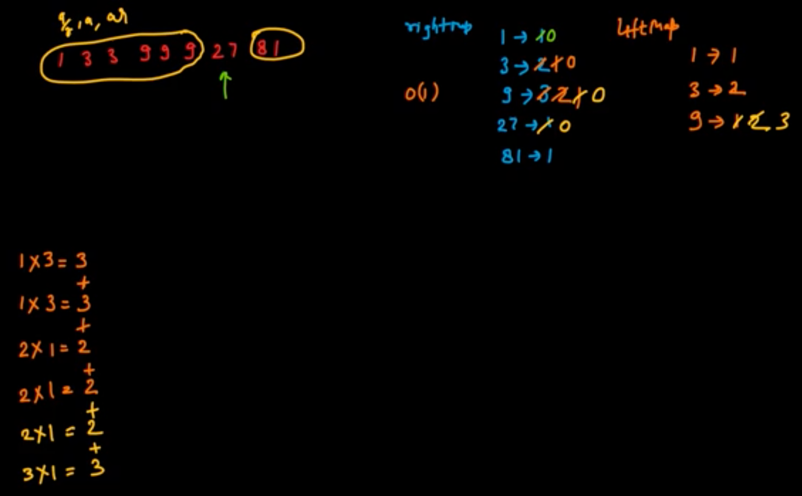 a/r, a, ar
1 3 3 9 9 9 27 81
right map
1 → 1 0
3 → 2 1 0
O(1)
9 → 3 2 1 0
27 → 1 0
81 → 1
left Map
1 → 1
3 → 2
9 → 1 2 3
1 x 3 = 3
+
1 x 3 = 3
+
2 x 1 = 2
+
2 x 1 = 2
+
2 x 1 = 2
+
3 x 1 = 3